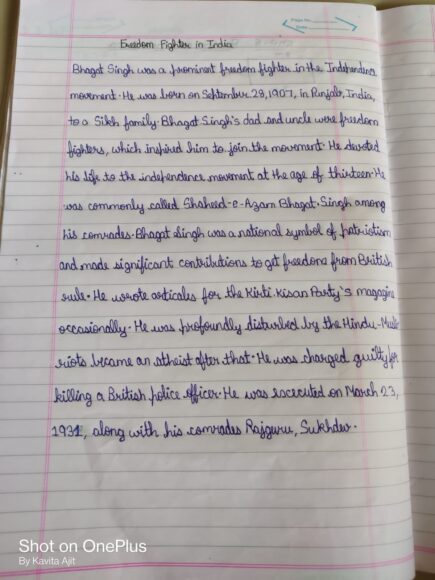 Freedom Fighter in India
Bhagat Singh was a prominent freedom fighter in the Independence
movement. He was born on September 28, 1907, in Punjab, India,
to a Sikh family. Bhagat Singh's dad and uncle were freedom
fighters, which inspired him to join the movement. He devoted
his life to the independence movement at the age of thirteen. He
was commonly called Shaheed-e-Azam Bhagat. Singh among
his comrades. Bhagat Singh was a national symbol of patriotism
and made significant contributions to get freedom from British
rule. He wrote articales for the Kirti Kisan Party's magazine
occasionally. He was profoundly disturbed by the Hindu-Musli
riots became an atheist after that. He was charged guilty for
killing a British police officer. He was excecuted on March 23,
1931, along with his comrades Rajguru, Sukhdev.
Shot on OnePlus
By Kavita Ajit